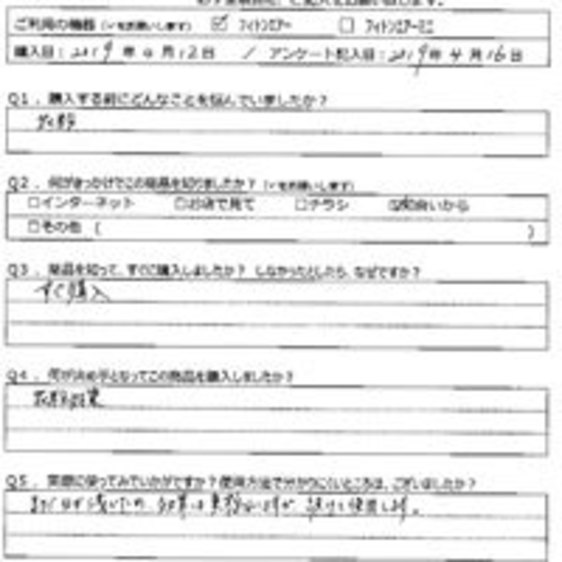 ご利用の機器(✓をお願いします) ☑ フィトンエアー □ フィトンエアーミニ
購入日:2019年4月12日 / アンケート記入日:2019年4月16日
Q1.購入する前にどんなことを悩んでいましたか?
花粉
Q2.何がきっかけでこの商品を知りましたか?(✓をお願いします)
□インターネット □お店で見て □チラシ ☑知合いから
□その他( )
Q3.商品を知って、すぐに購入しましたか? しなかったとしたら、なぜですか?
すぐ購入
Q4.何が決め手となってこの商品を購入しましたか?
花粉対策
Q5.実際に使ってみていかがですか?使用方法で分かりにくいところは、ございましたか?
まだ日が浅いため、効果は